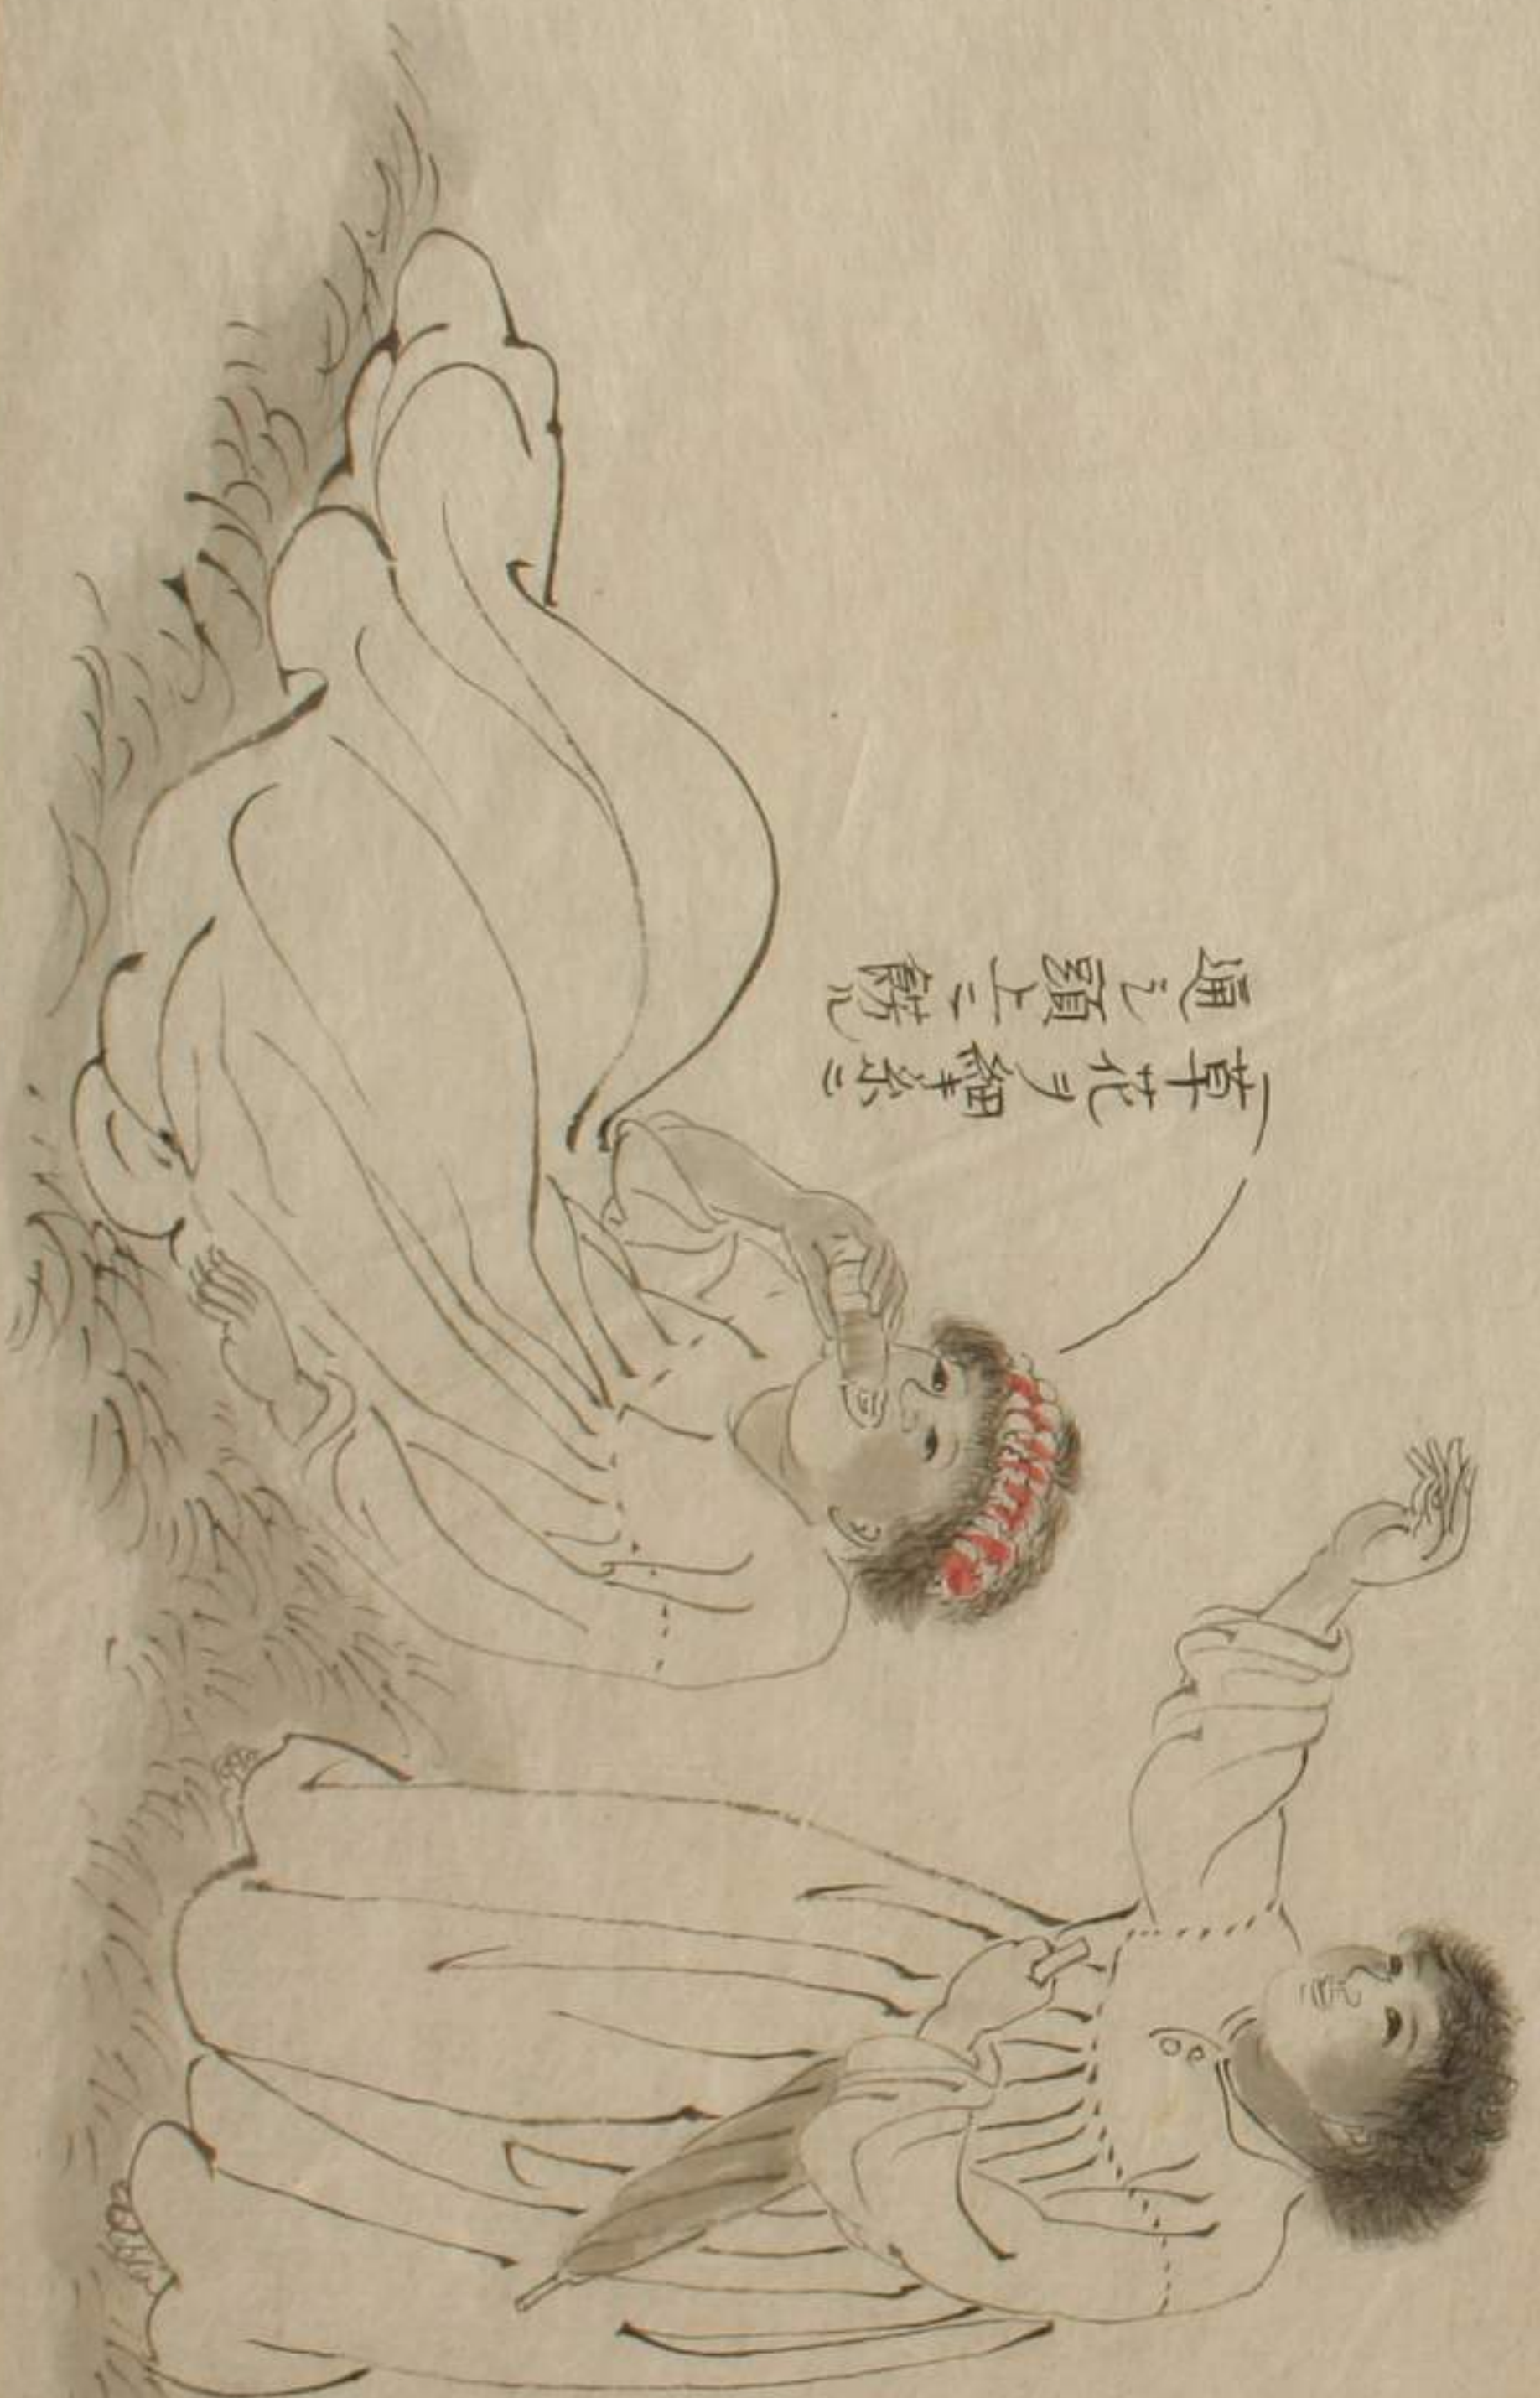 草花ヲ細キ糸ニ
通シ頭上ニ飾ル